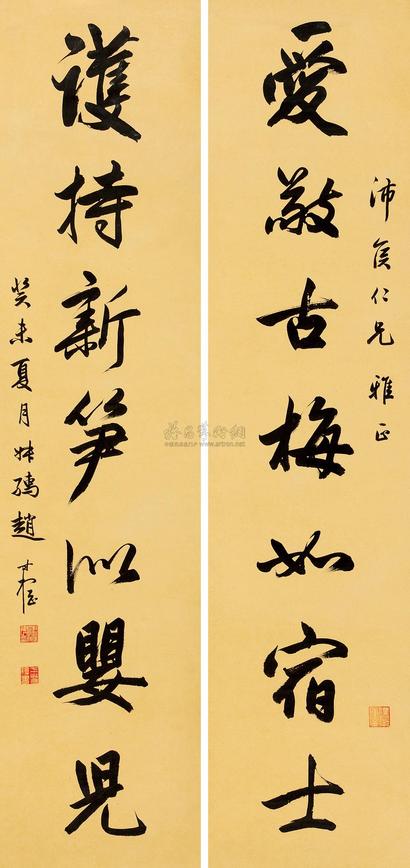 沛侯仁兄雅正
愛敬古梅如宿士
護持新笋似嬰兒
癸未夏月趙
雅昌藝術網
www.artron.net